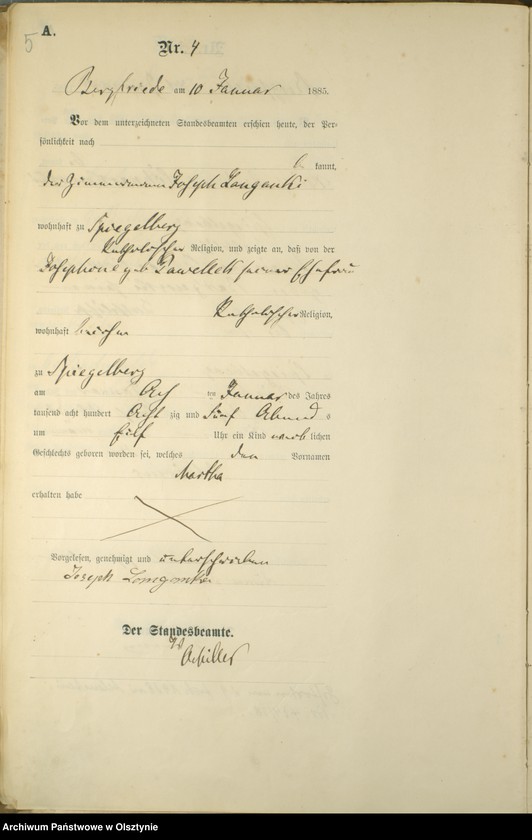 5
A.
Nr. 4
Bergfriede am 10 Januar 1885.
Vor dem unterzeichneten Standesbeamten erschien heute, der Per-
sönlichkeit nach
b kannt,
der Zimmermann Joseph Langanki
wohnhaft zu Spiegelberg
Katholischer Religion, und zeigte an, daß von der
geb Pawellek seiner Ehefrau
Katholischer Religion,
wohnhaft bei ihm
zu Spiegelberg
am ten Januar des Jahres
tausend acht hundert Acht zig und fünf Abend s
um Eilf Uhr ein Kind weib lichen
Geschlechts geboren worden sei, welches den Vornamen
Martha
erhalten habe
Vorgelesen, genehmigt und unterschrieben
Joseph
Der Standesbeamte.